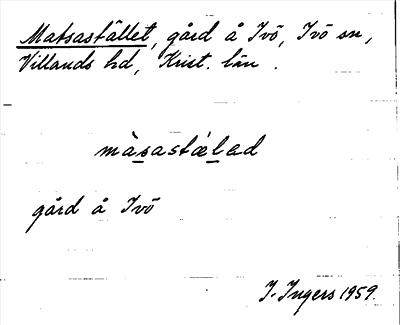 Matsastället, gård å Ivö, Ivö sn,
Villands hd, Krist. län.
màsastǽlad
gård å Ivö
I. Ingers 1959.